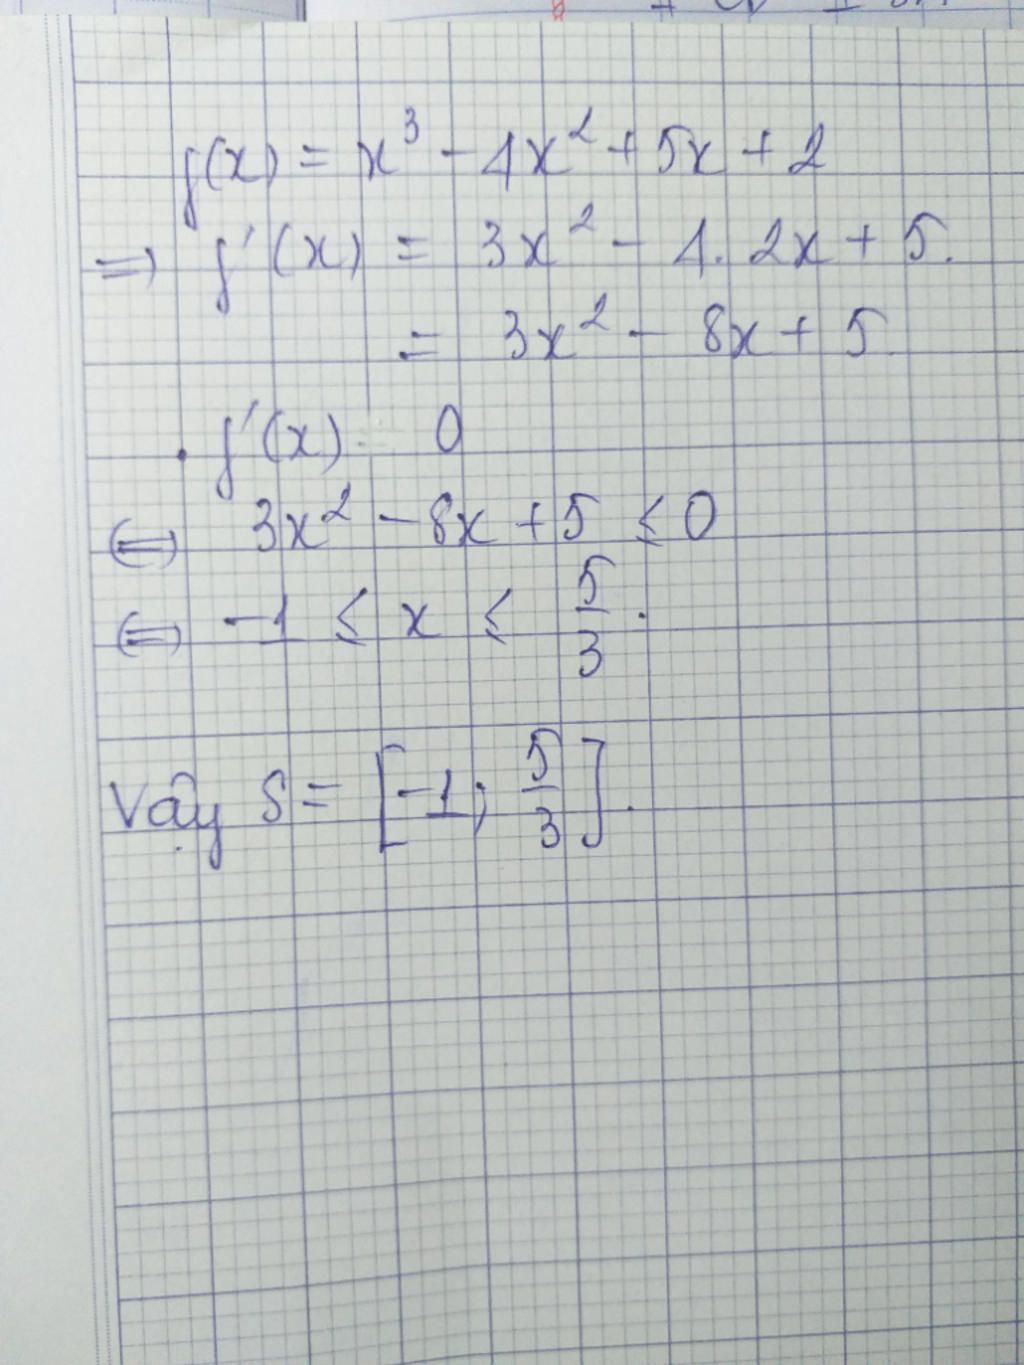 f(x) = x³ - 4x² + 5x + 2
=> f'(x) = 3x² - 4. 2x + 5.
= 3x² - 8x + 5.
. f'(x) = 0
<=> 3x² - 8x + 5 ≤ 0
<=> -1 ≤ x ≤ 5/3.
Vậy S = [-1; 5/3].